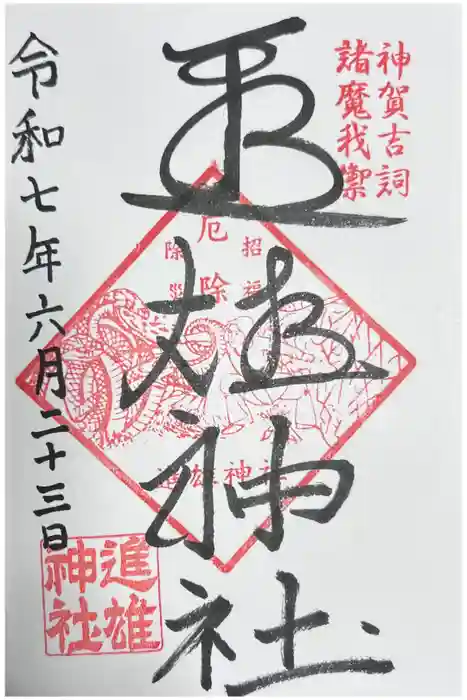 神賀古詞
諸魔我禦
進雄神社
招福
厄除
除災
進雄神社
令和七年六月二十三日
進雄
神社